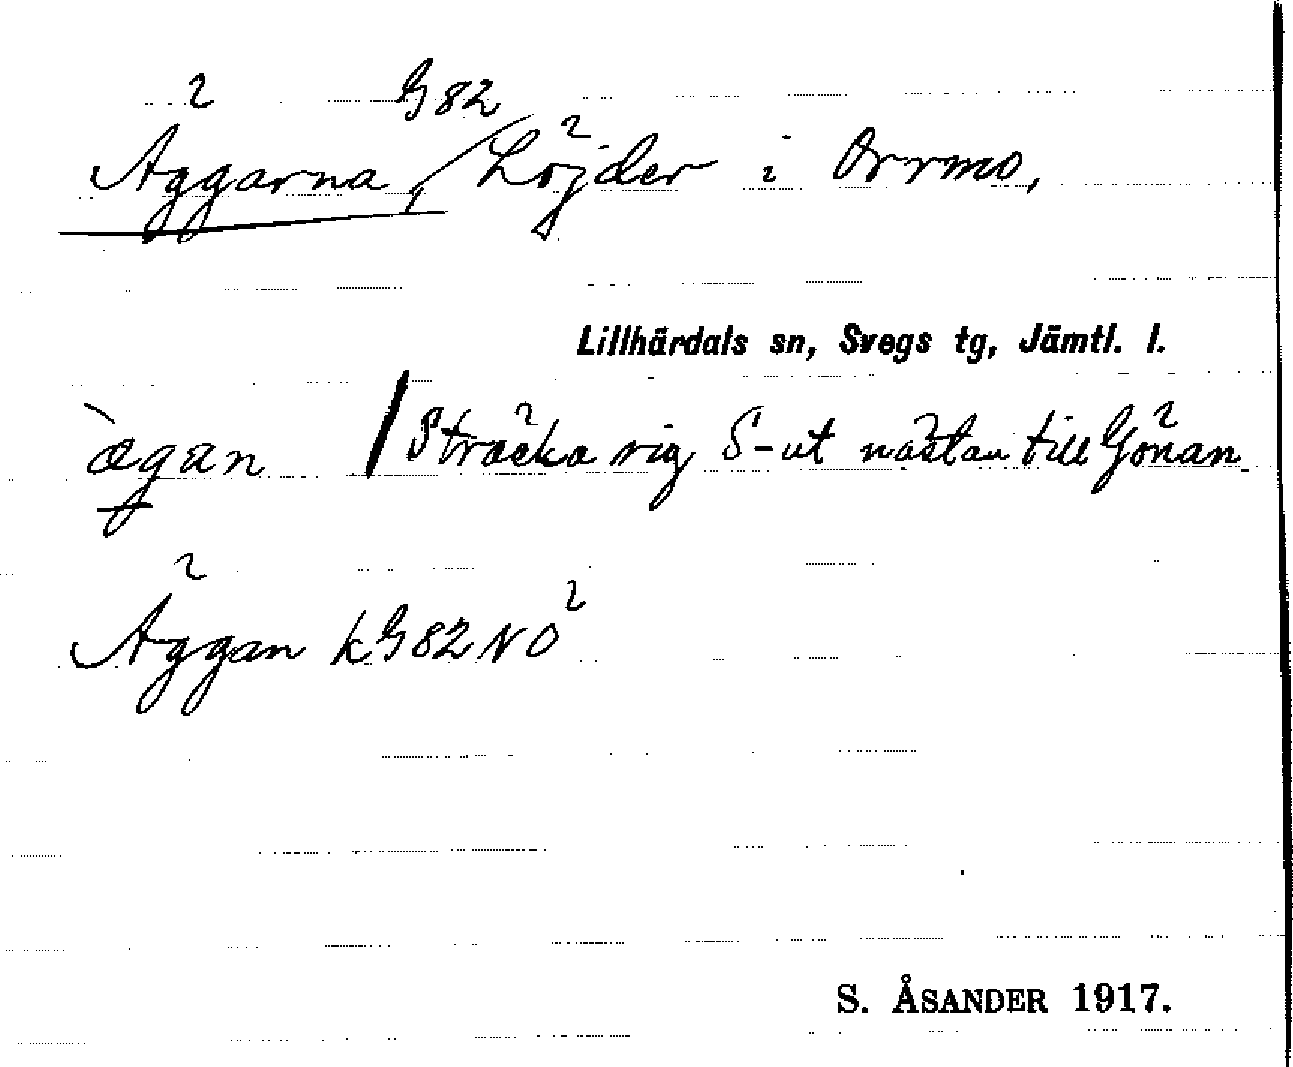 G 82
Äggarna, Löjder i Orrmo,
Lillhärdals sn, Svegs tg, Jämtl. l.
ægan / Sträcka sig S-ut nästan till Gönan
Äggan k G 82 NO
S. ÅSANDER 1917.